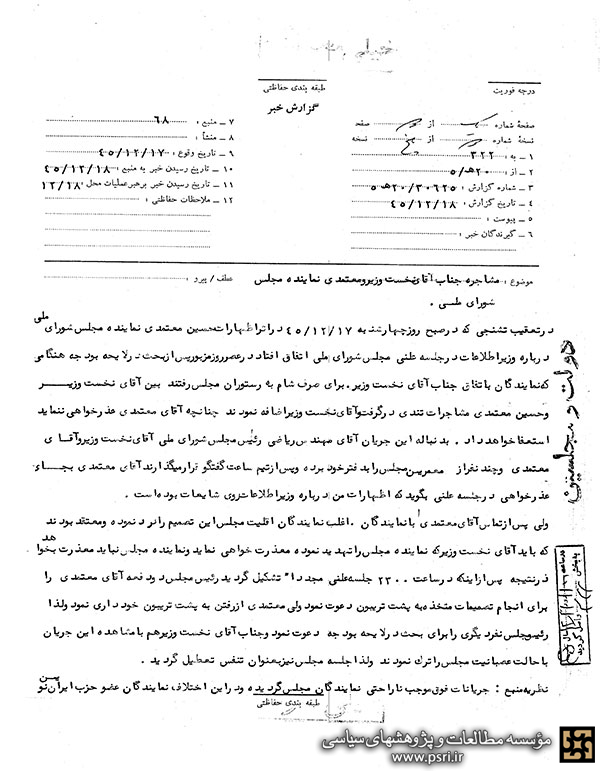 خیلی
درجه فوریت
طبقه بندی حفاظتی
گزارش خبر
صفحهٔ شماره یک از دو صفحه
نسخهٔ شماره از پنج نسخه
۱ ـ به : ۳۲۲
۲ ـ از : ۲۰ هـ/۵
۳ ـ شماره گزارش : ۳۰۶۲۵/۲۰ هـ ۵
۴ ـ تاریخ گزارش : ۴۵/۱۲/۱۸
۵ ـ پیوست :
۶ ـ گیرندگان خبر :
۷ ـ منبع : ۶۸
۸ ـ منشأ :
۹ ـ تاریخ وقوع : ۴۵/۱۲/۱۷
۱۰ ـ تاریخ رسیدن خبر به منبع : ۴۵/۱۲/۱۸
۱۱ ـ تاریخ رسیدن خبر برهبر عملیات محل : ۱۲/۱۸
۱۲ ـ ملاحظات حفاظتی :
موضوع : مشاجره جناب آقای نخست وزیر و معتمدی نماینده مجلس عطف / پیرو :
شورای ملی .
در تعقیب تشنجی که در صبح روز چهارشنبه ۴۵/۱۲/۱۷ در اثر اظهارات حسین معتمدی نماینده مجلس شورای ملی
درباره وزیر اطلاعات در جلسه علنی مجلس شورای ملی اتفاق افتاد در عصر روز مزبور پس از بحث در لایحه بودجه هنگامی
که نمایندگان باتفاق جناب آقای نخست وزیر . برای صرف شام به رستوران مجلس رفتند بین آقای نخست وزیر
و حسین معتمدی مشاجرات تندی درگرفت و آقای نخست وزیر اضافه نمودند چنانچه آقای معتمدی عذرخواهی ننماید
استعفا خواهد داد . بدنباله این جریان آقای مهندس ریاضی رئیس مجلس شورای ملی آقای نخست وزیر و آقای
معتمدی و چند نفر از معمرین مجلس را به دفتر خود برده و پس از نیم ساعت گفتگو قرار میگذارند آقای معتمدی بجای
عذرخواهی در جلسه علنی بگوید که اظهارات من درباره وزیر اطلاعات روی شایعات بوده است .
ولی پس از تماس آقای معتمدی با نمایندگان . اغلب نمایندگان اقلیت مجلس این تصمیم را رد نموده و معتقد بودند
که باید آقای نخست وزیر که نماینده مجلس را تهدید نموده معذرت خواهی نماید و نماینده مجلس نباید معذرت بخواهد
در نتیجه پس از اینکه در ساعت ۲۳۰۰ جلسه علنی مجددا" تشکیل گردید رئیس مجلس دو دفعه آقای معتمدی را
برای انجام تصمیمات متخذه به پشت تریبون دعوت نمود ولی معتمدی از رفتن به پشت تریبون خودداری نمود ولذا
رئیس مجلس نفر دیگری را برای بحث در لایحه بودجه دعوت نمود و جناب آقای نخست وزیر هم با مشاهده این جریان
با حالت عصبانیت مجلس را ترک نمودند ولذا جلسه مجلس نیز بعنوان تنفس تعطیل گردید .
نظریه منبع : جریانات فوق موجب ناراحتی نمایندگان مجلس گردیده و در این اختلاف نمایندگان عضو حزب ایران نوین
طبقه بندی حفاظتی
دولت و مجلسین
مؤسسه مطالعات و پژوهشهای سیاسی
www.psri.ir